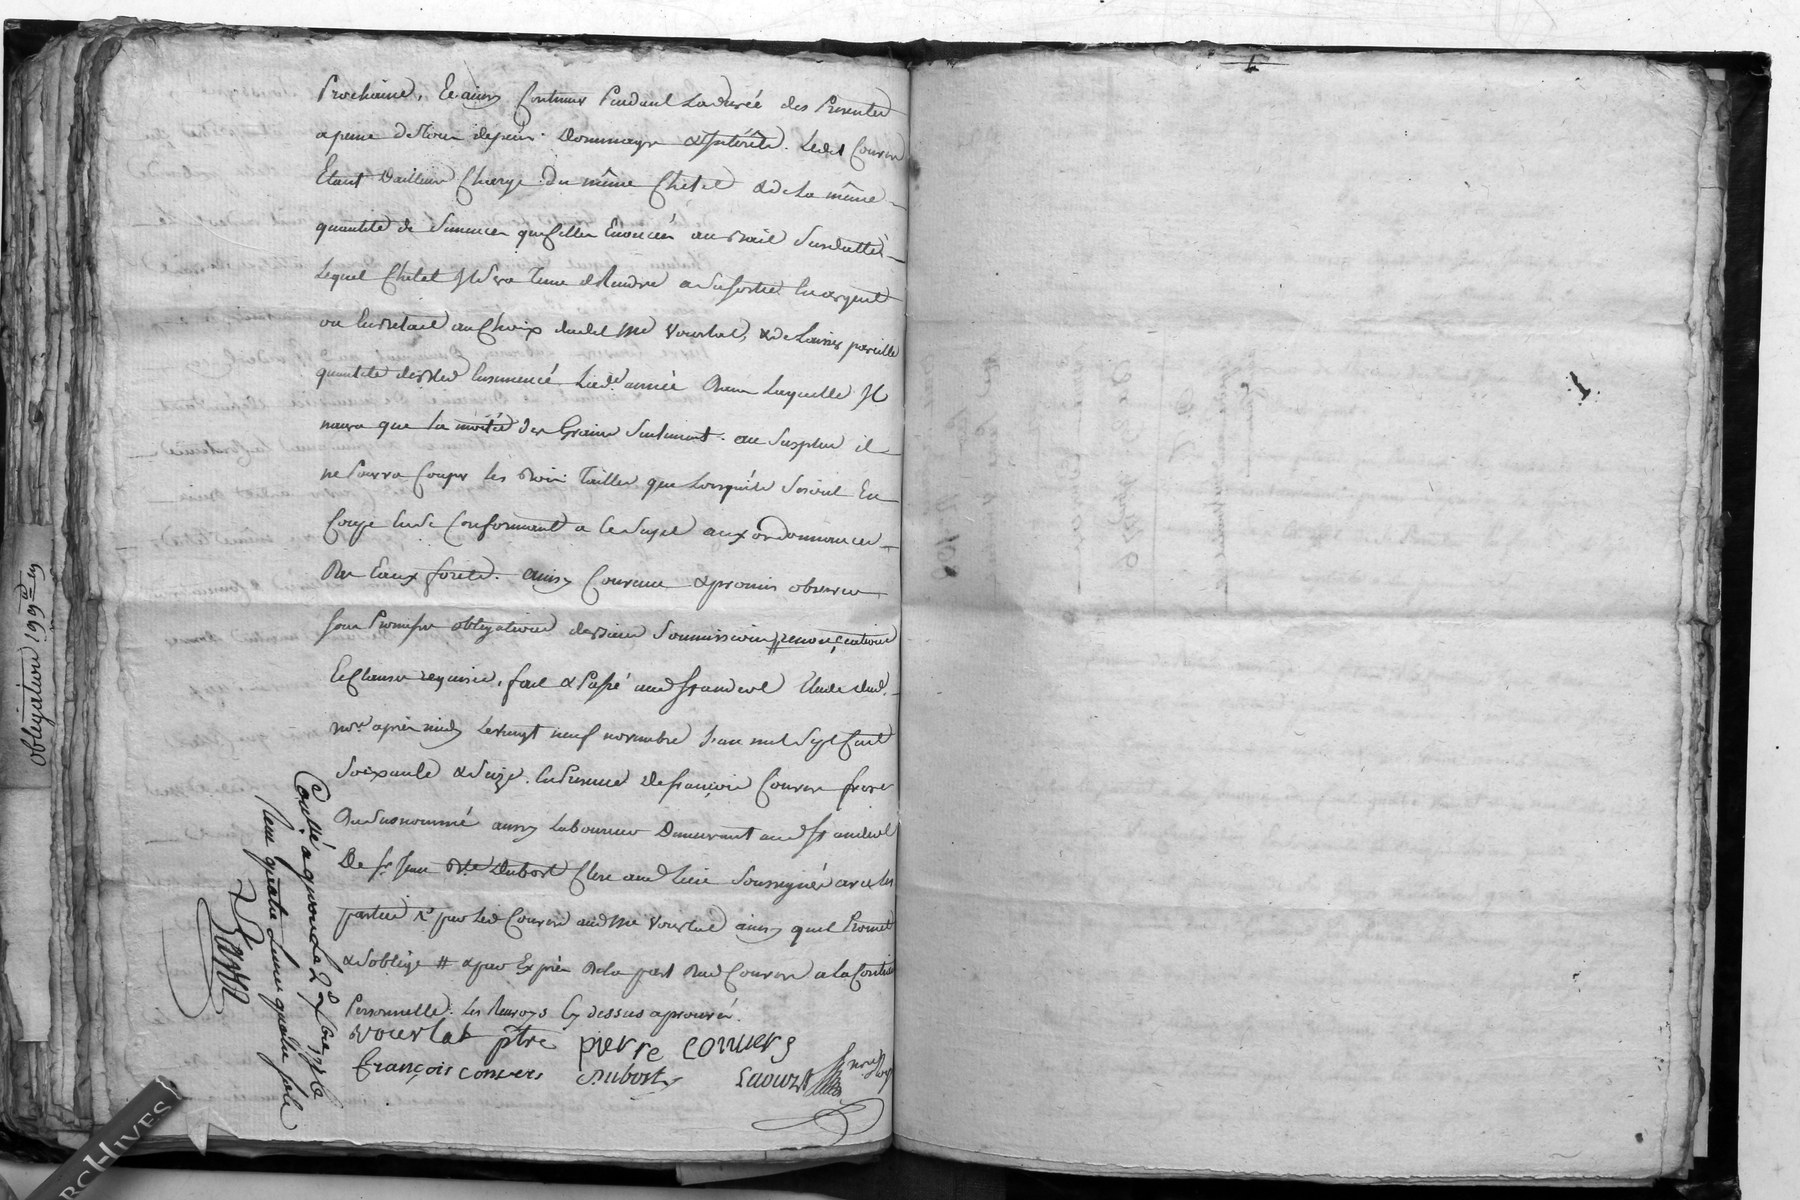 Prochaine, Et ainsy Continuer Pendant La durée des Presentes
a peine de tous depens Dommages & Interêts. Ledit Convers
Etant Dailleurs Chargé du même Chetel & de La même
quantité de Semences que celles Enoncées au Bail Susdatté
Lequel Chetel Il Sera Tenu de Rendre a Sa Sortie En argent
ou En Betail au Choix dudit Me Vourlat, & de Laisser pareille
quantité de Bled Ensemencé Lad. année Dans Laquelle Il
naura que La moitié des Grains Seulement. au Surplus il
ne Pourra Couper Les Bois Tailles que Lorsquils Seront En
Coupe En Se Conformant a Ce Sujet aux ordonnances
Des Eaux forets. ainsy Convenu & promis observer
Sous Promesses obligations de Biens Soumissions renonciations
Et Clauses requises, fait & Passé aud St andeol Etude dud.
nore après midy Le vingt neuf novembre L'an mil Sept Cent
Soixante & Seize. En Presence De françois Convers frere
Du Susnommé aussy Laboureur Demeurant aud St andeol
De Sr Jean Bte Dubost Clerc aud Lieu Soussignés avec Les
parties Ct par Led Convers aud Me Vourlat ainsy quil Promet
& Soblige # & par Exprès De La part Dud Convers a La Contrainte
Personnelle. Les Renvoys Cy dessus aprouvés.
Vourlat ptre pierre convers
François convers Dubost
Con̄lé a givors La 2e Xbre 1776
Reçu quatre Livres quatre sols
obligation
ARCHIVES